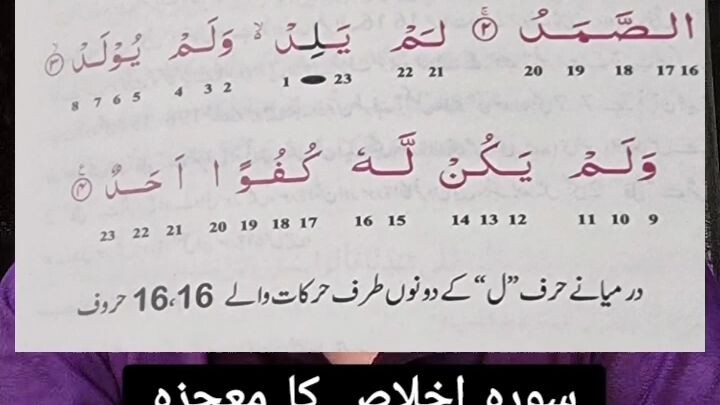 الصَّمَدُ ۝٢ لَمْ يَلِدْ ۙ وَلَمْ يُوْلَدْ ۝٣ۙ
16 17 18 19 20 21 22 23 1 2 3 4 5 6 7 8
وَلَمْ يَكُنْ لَّهٗ كُفُوًا اَحَدٌ ۝٤
9 10 11 12 13 14 15 16 17 18 19 20 21 22 23
درمیانے حرف ”ل“ کے دونوں طرف حرکات والے 16،16 حروف
سورہ اخلاص کا معجزہ